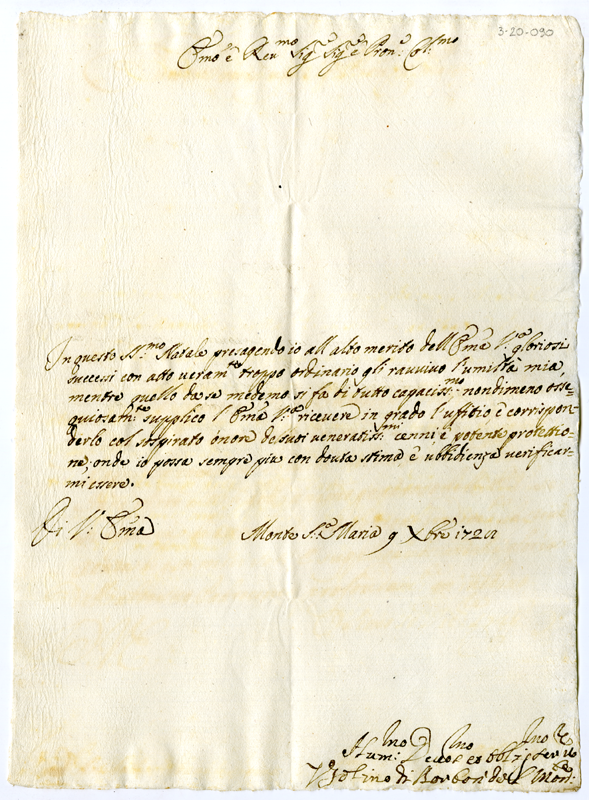 3-20-090
Em̃o è Reu:mo Sig:re Sig:re è Pron:e Col:mo
In questo SS:mo Natale presagendo io all alto merito dell Em̃a V:ra gloriosi
successi con atto veram:te troppo ordinario gli ravvivo l'umiltà mia,
mentre quello da se medemo si fa di tutto capaciss:mo nondimeno osse-
quiosam:te supplico l'Em̃a V:ra ricevere in grado l'uffitio è corrispon-
derlo col sospirato onore de suoi veneratiss:mi cenni è potente protettio-
ne, onde io possa sempre più con douta stima è ubbidienza verificar-
mi essere.
Di V: Em̃a
Monte S:ta Maria 9 Xbre
Hum:mo Deuo:mo et obblig:mo Ser:re
di Borbon del Mon:te